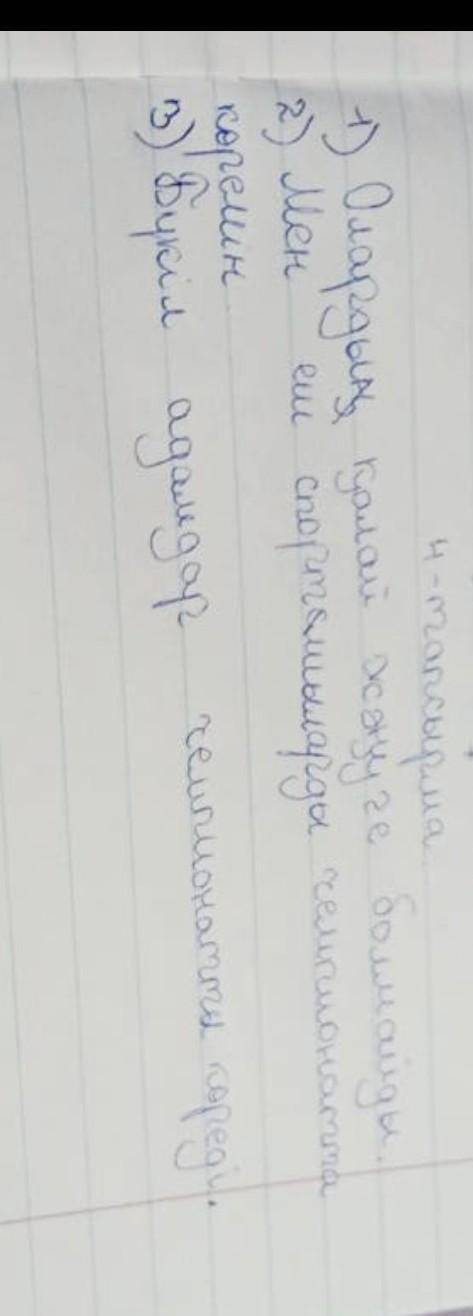 4-тапсырма
1) Олардың қалай жəңуге болмайды.
2) Мен еш спортшыларды чемпионатта
көремин
3) Бүкіл адамдар чемпионатты көреді.